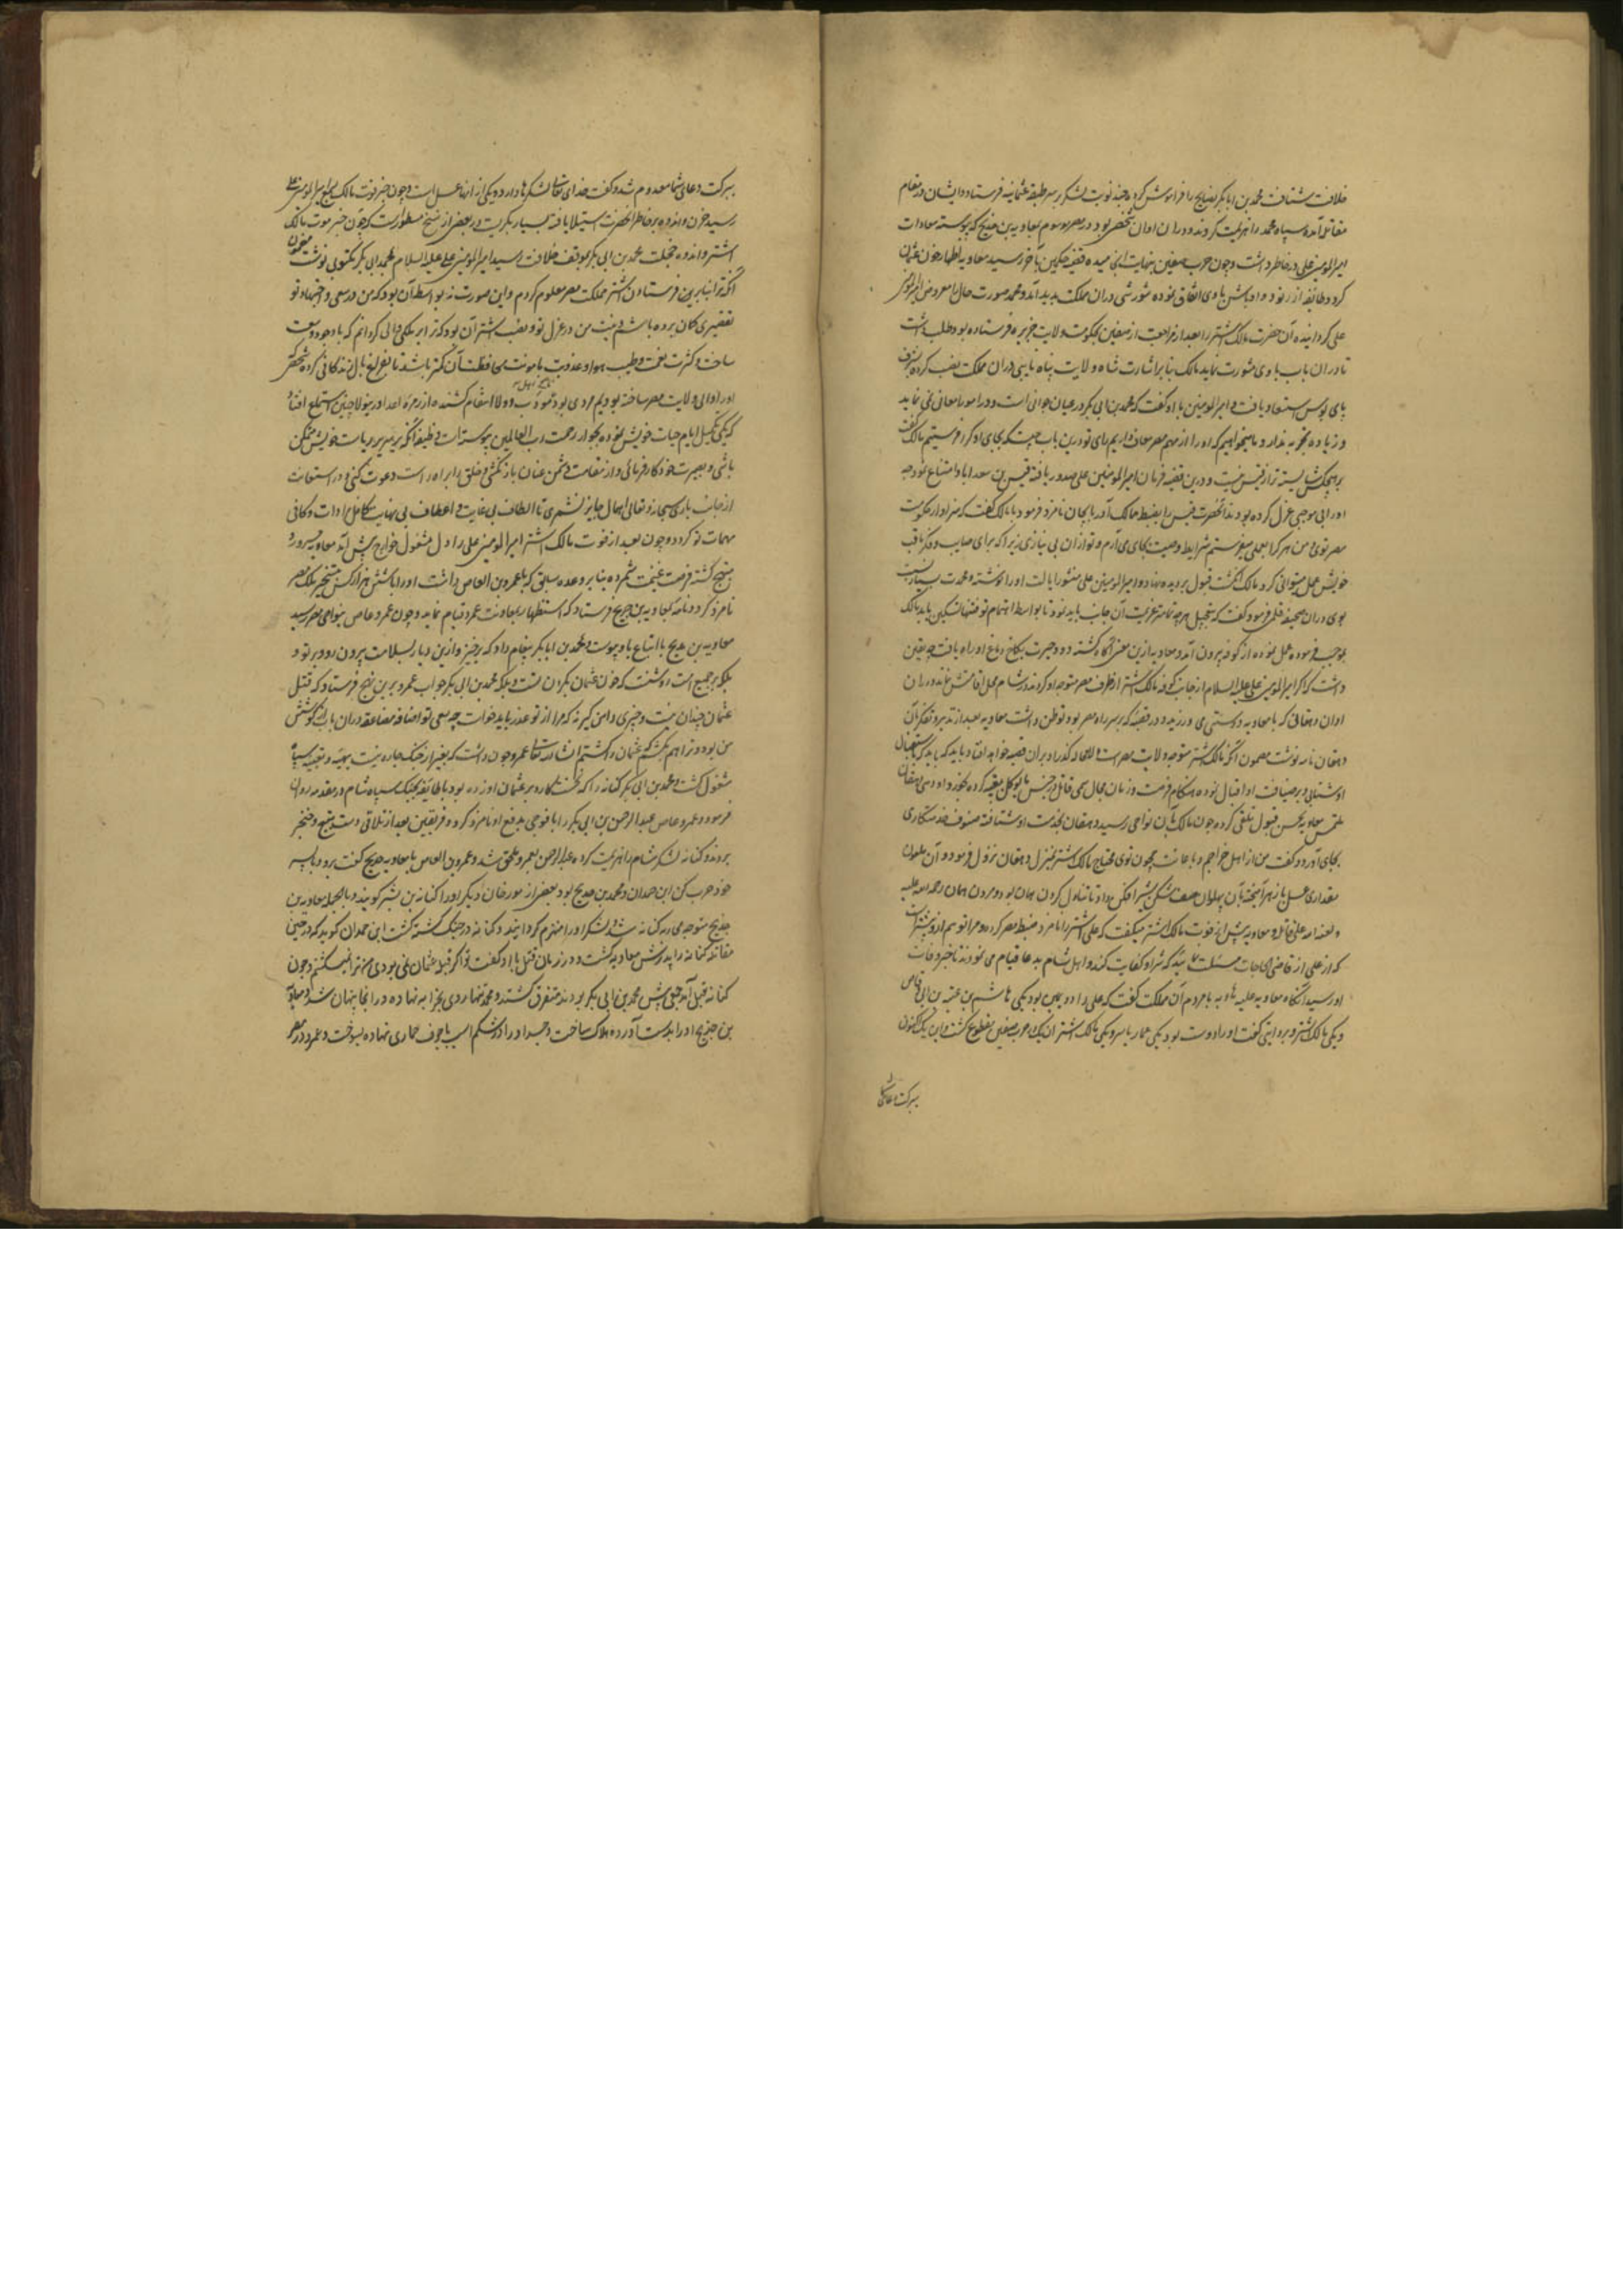 خلافت شتافت محمد بن ابابکر نصایح را فراموش کرده چند نوبت لشکر بر سر طبقه عثمانیه فرستاد و ایشان در مقام
مقاتله آمده سپاه محمد را هزیمت کردند و دران اوان شخصی بود در مصر موسوم بمعاویه بن خدیج که پیوسته معادات
امیرالمومنین علی در خاطر داشت و چون حرب صفین بنهایت انجامیده قضیه حکمین بآخر رسید معاویه اظهار خون عثمان
کرد و طایفه از رنود و اوباش با وی اتفاق نموده شورشی دران مملکت پدید آمد و محمد صورت حال را معروض امیرالمومنین
علی گردانیده آن حضرت مالک اشتر را بعد از مراجعت از صفین بحکومت ولایت جزیره فرستاده بود طلب داشت
تا دران باب با وی مشورت نماید مالک بنا بر اشارت شاه ولایت پناه نایبی دران مملکت نصب کرده بشرف
پای بوس استسعاد یافت و امیرالمومنین با او گفت که محمد بن ابی بکر در عیان جوانی است و در امور امعانی نمی نماید
و زیاده تجربه ندارد و ما میخواهیم که او را از مهم مصر معاف داریم رای تو درین باب چیست که بجای او کرا فرستیم مالک گفت
هیچکس شایسته تر از قیس نیست و درین قضیه فرمان امیرالمومنین علی صدور یافته قیس بن سعد ابا و امتناع نمود چه
او را بی موجبی عزل کرده بودند آنحضرت قیس را بضبط ممالک آذربایجان نامزد فرمود با مالک گفت که سزاوار حکومت
مصر توئی من هر کرا بعملی میفرستم شرایط وصیت بجای می آرم و تو ازان بی نیازی زیرا که برای صایب و فکر ثاقب
خویش عمل میتوانی کرد مالک انگشت قبول بر دیده نهاد و امیرالمومنین علی منشور ایالت او را نوشته و محمدت بسیار نسبت
بوی دران صحیفه قلمی فرمود و گفت که بتعجیل هر چه تمامتر عزیمت آن جانب باید نمود تا بواسطه اهتمام تو فتنها تسکین یابد مالک
بموجب فرموده عمل نموده از کوفه بیرون آمد و معاویه ازین معنی آگاه گشته دود حیرت بکاخ دماغ او راه یافت چه یقین
داشت که اگر امیرالمومنین علی علیه السلام از جانب کوفه مالک اشتر از طرف مصر متوجه او گردند در شام محل اقامتش نماند و دران
اوان دهقانی که با معاویه دوستی می ورزید و در قصبه که بر سر راه مصر بود توطن داشت معاویه بعد از تدبر و تفکر بآن
دهقان نامه نوشت مضمون آنکه مالک اشتر متوجه ولایت مصر است لامحاله گذر او بران قصبه خواهد افتاد باید که باید که باستقبال
او شتابی و بر ضیافت او اقبال نموده هنگام فرصت و زمان مجال سمی قاتل در جنس ماکول تعبیه کرده بخورد او دهی دهقان
ملتمس معاویه بحسن قبول تلقی کرده چون مالک بآن نواحی رسید دهقان بخدمت او شتافته صنوف خدمتکاری
بجای آورد و گفت من از اهل خراجم و باعانت همچون توی محتاج مالک اشتر بمنزل دهقان نزول فرمود و آن ملعون
مقداری عسل با زهر آمیخته بآن پهلوان صف شکن شیر افکن داد تا تناول کردن همان بود و مردن همان رحمه الله علیه
و لعنه الله علی قاتله و معاویه پیش از فوت مالک اشتر میگفت که علی اشتر را نامزد ضبط مصر کرد و مرا توهم ازو بیشتر است
که از علی از قاضی الحاجات مسئلت نمائید که شر او کفایت کند و اهل شام بدعا قیام می نمودند تا خبر وفات
او رسید آنگاه معاویه علیه الهاویه با مردم آن مملکت گفت که علی را دو یمین بود یکی هاشم بن عتبه بن ابی وقاص
و یکی مالک اشتر و بروایتی گفت او را دو دست بود یکی عمار یاسر و یکی مالک اشتر ان یک در حرب صفین مقطوع گشت و این یک اکنون
ببرکت دعای شما
ببرکت دعای شما معدوم شد و گفت خدای تعالی لشکرها دارد و یکی از انها عسل است و چون خبر فوت مالک بسمع امیرالمومنین علی
رسید حزن و اندوه بر خاطر آنحضرت استیلا یافته بسیار بگریست در بعضی از نسخ مسطور است که چون خبر موت مالک
اشتر و اندوه و خجلت محمد بن ابی بکر بموقف خلافت رسید امیرالمومنین علی علیه السلام بمحمد ابی بکر مکتوبی نوشت مضمون
آنکه ترا بنابرین فرستادن اشتر مملکت مصر معلوم کردم و این صورت نه بواسطه آن بود که من در سعی و اجتهاد تو
تقصیری گمان برده باشم و نیت من در عزل تو و نصب اشتر آن بود که ترا بر ملکی والی گردانم که با وجود وسعت
ساحت و کثرت نعمت و طیب هوا و عذوبت ما مونت محافظت آن کمتر باشد تا بفراغ بال زندگانی کرده شخصی که
او را والی ولایت مصر ساخته بودیم مردی بود مودب و ولا انتقام کشنده از زمره اعدا و ر مینولا چنین استماع افتاد
که یکی تکمیل ایام حیات خویش نموده بجوار رحمت رب العالمین پیوسته است وظیفه آنکه بر سریر ریاست خویش متمکن
باشی و بصیرت خود کار فرمائی و از مقاتلت دشمن عنان باز نکشی و خلق را براه راست دعوت کنی و در استعانت
از جناب باری سبحانه و تعالی اهمال جایز نشمری تا الطاف بی غایت و اعطاف بی نهایت متکفل مرادات و کافی
مهمات تو گردد و چون بعد از فوت مالک اشتر امیرالمومنین علی را دل مشغول خوارج پیش آمد معاویه مسرور و
مبتهج گشته فرصت غنیمت شمرده بنا بر وعده سابق که با عمرو بن العاص داشت او را با شش هزار کس بتسخیر ملک مصر
نامزد کرد و نامه بمعاویه بن خدیج فرستاد که استظهار بمعاونت عمرو قیام نماید و چون عمرو عاص بنواحی مصر رسید
معاویه بن خدیج با اتباع باو پیوست و بمحمد بن ابابکر پیغام داد که برخیز و ازین دیار بسلامت بیرون رو و بر تو و
بلکه بر جمیع امت روشنست که خون عثمان بگردن تست و بلکه محمد بن ابی بکر جواب عمرو برین نهج فرستاد که قتل
عثمان چندان نیست و چیزی دامن گیر نه که مرا از تو عذر باید خواست چه سعی تو اضافه مضاعفه دران باب از کوشش
من بود و ترا هم بکشم که عثمان را کشتم انشاء الله تعالی عمرو چون دانست که بغیر از جنگ چاره نیست بتهیه و تعبیه سپاه
مشغول گشت و محمد بن ابی بکر کنانه را که نخست کارد بر عثمان او زده بود با طایفه بجنگ سپاه شام در مقدمه روان
فرمود و عمرو عاص عبد الرحمن بن ابی بکر را با فوجی بدفع او نامزد کرد و فریقین بعد از تلاقی دست بتیغ و خنجر
بردند و کنانه لشکر شام را هزیمت کرده عبدالرحمن بعمرو ملحق شد و عمرو بن العاص با معاویه خدیج گفت برو و با پسر
خود حرب کن ابن حمدان و محمد بن خدیج بود و بعضی از مورخان دیگر او را کنانه بن بشر گویند و بالجمله معاویه بن
خدیج متوجه محاربه کنانه شد و لشکر او را منهزم گردانید و کنانه در جنگ گشته گشت ابن حمدان گوید که در حین
مقاتله کنانه را پدرش معاویه کشت و در زمان قتل با او گفت تو اگر قتله عثمان نمی بودی من ترا نمیکشتم و چون
کنانه بقتل آمد جمعی پیش محمد بن ابی بکر بودند متفرق گشتند و محمد تنها روی بخرابه نهاده در انجا پنهان شد و معاویه
بن خدیج او را بدست آورده هلاک ساخت و جسد او را در شکم اسب یا جوف حماری نهاده بسوخت و عمرو در مصر